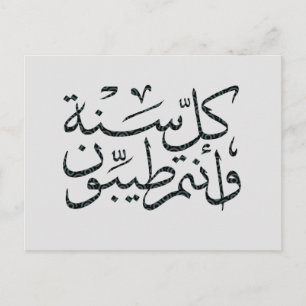 كلّ سنة
وأنتم طيّبون